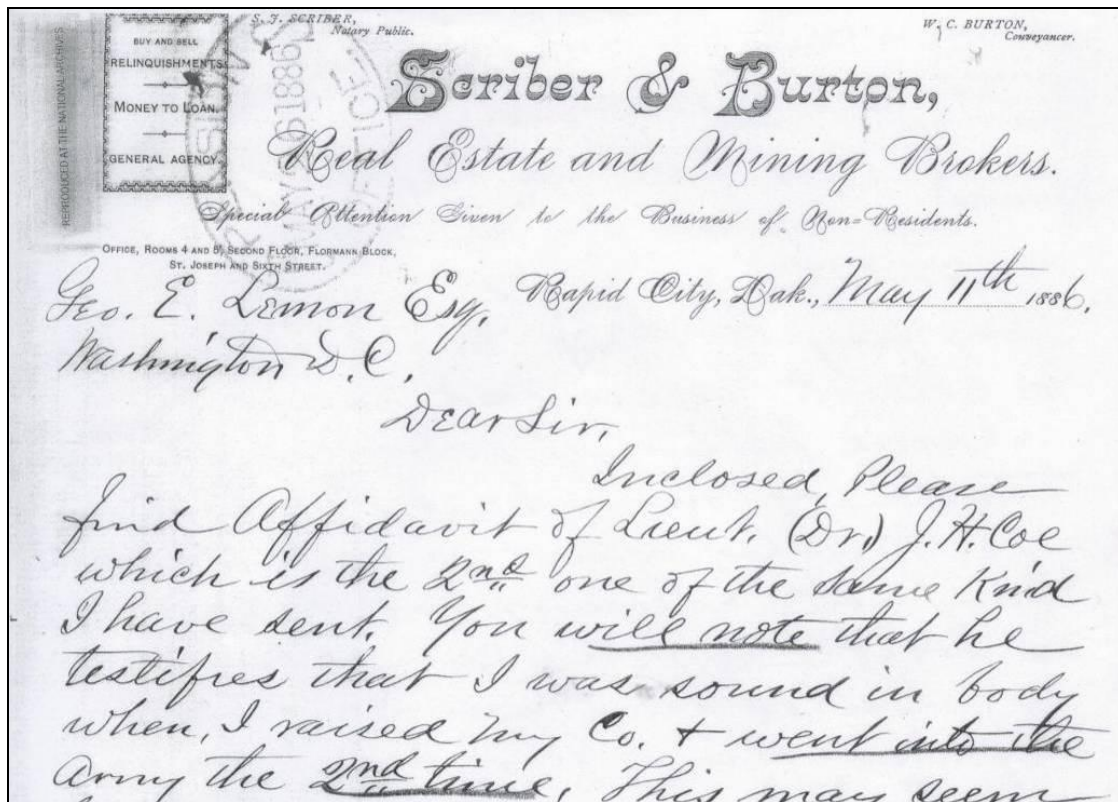 S. J. SCRIBER,
Notary Public.
W. C. BURTON,
Conveyancer.
REPRODUCED AT THE NATIONAL ARCHIVES
BUY AND SELL
RELINQUISHMENTS
MONEY TO LOAN.
GENERAL AGENCY.
MAY 1886
OFFICE
Scriber & Burton,
Real Estate and Mining Brokers.
Special Attention Given to the Business of Non-Residents.
OFFICE, ROOMS 4 AND 5, SECOND FLOOR, FLORMANN BLOCK,
ST. JOSEPH AND SIXTH STREET.
Rapid City, Dak., May 11th 1886.
Geo. E. Lemon Esq.
Washington D.C.
Dear Sir,
Inclosed, Please
find Affidavit of Lieut. (Dr.) J. H. Coe
which is the 2nd one of the same Kind
I have sent. You will note that he
testifies that I was sound in body
when, I raised my Co. + went into the
Army the 2nd time, This may seem